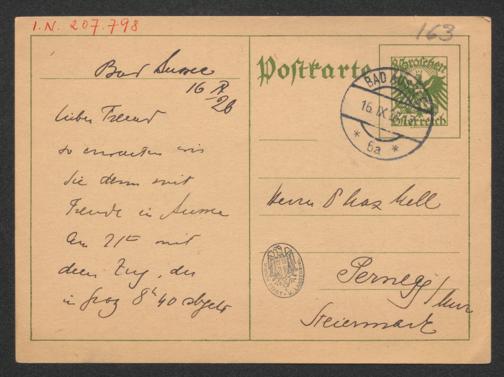 I.N. 207.798
163
Postkarte
Groschen
Österreich
BAD AUSSEE
16.IX.
* 6a *
Bad Aussee
16 IX/26
Lieber Freund
so erwarten wir
Sie denn mit
Freude in Aussee
am 21ten mit
dem Zug, der
in Graz 8h 40 abgeht
Herrn Max Mell
Pernegg/Mur
Steiermark